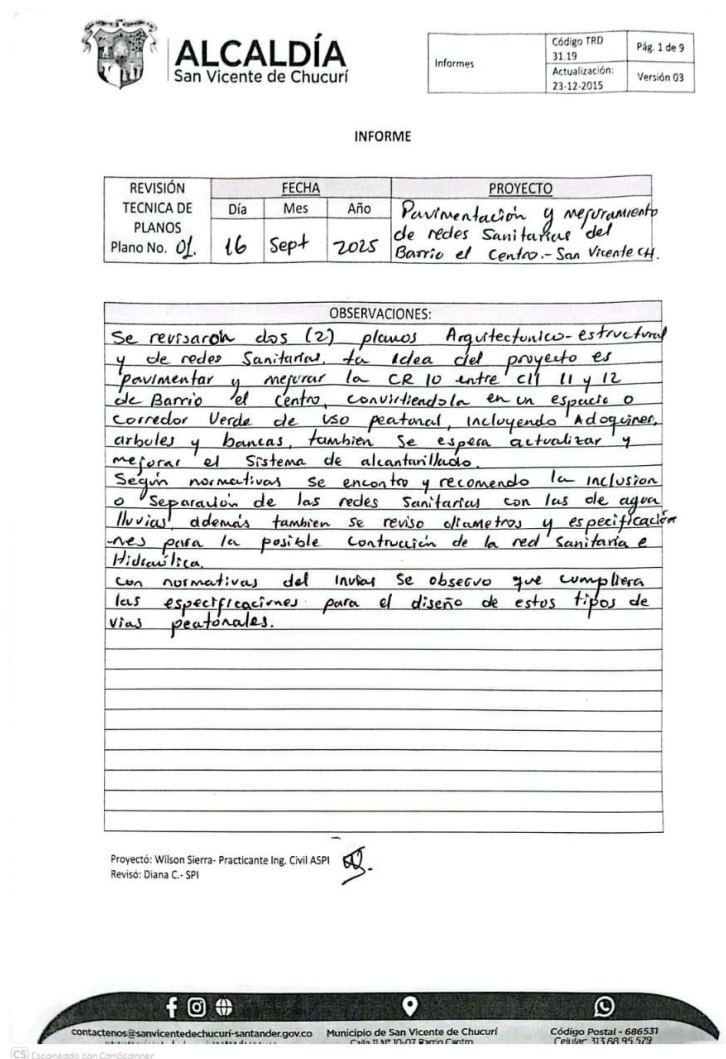 ALCALDÍA
San Vicente de Chucurí
Informes
Código TRD
31.19
Actualización:
23-12-2015
Pág. 1 de 9
Versión 03
INFORME
REVISIÓN
TECNICA DE
PLANOS
Plano No. 01.
FECHA
Día Mes Año
16 Sept 2025
PROYECTO
Pavimentación y mejoramiento
de redes Sanitarias del
Barrio el Centro.- San Vicente CH.
OBSERVACIONES:
Se revisaron dos (2) planos Arquitectonico-estructural
y de redes Sanitarias, La idea del proyecto es
pavimentar y mejorar la CR 10 entre Cll 11 y 12
de Barrio el Centro, convirtiendola en un espacio o
corredor Verde de uso peatonal, incluyendo Adoquines,
arboles y bancas, tambien Se espera actualizar y
mejorar el Sistema de alcantarillado.
Según normativas se encontro y recomendo la inclusion
o Separación de las redes Sanitarias con las de agua
lluvias, además tambien se reviso diametros y especificacio
-nes para la posible Contrucción de la red Sanitaria e
Hidraúlica.
con normativas del invias Se observo que cumpliera
las especificaciones para el diseño de estos tipos de
vias peatonales.
Proyectó: Wilson Sierra- Practicante Ing. Civil ASPI
Revisó: Diana C.- SPI
contactenos@sanvicentedechucuri-santander.gov.co
Municipio de San Vicente de Chucurí
Calle 11 Nº 10-07 Barrio Centro
Código Postal - 686531
Celular: 313 68 95 579
CS Escaneado con CamScanner